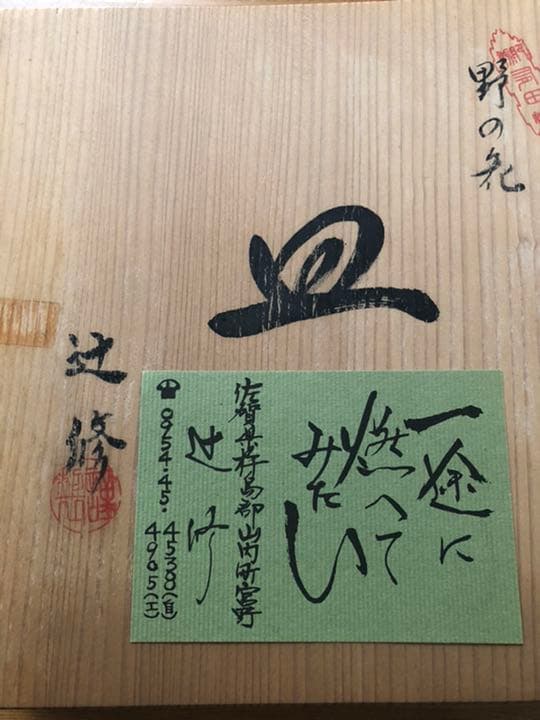 野の花
皿
辻修
一途に
燃へて
みたい
佐賀県杵島郡山内町宮野
辻修
☎0954・45・4538(自)
4965(工)